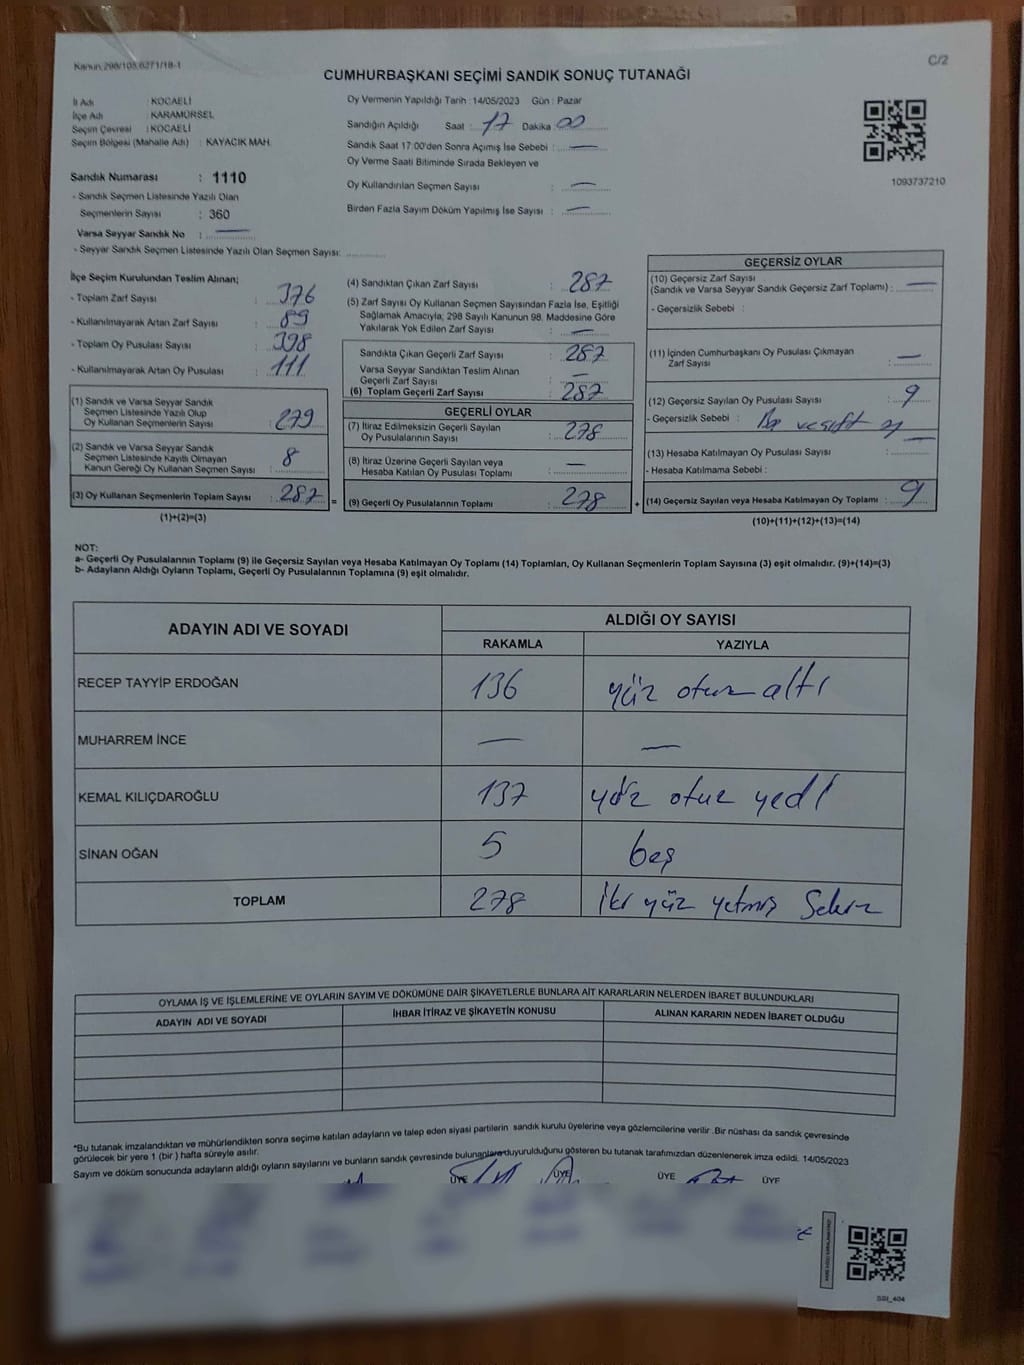 Kanun:298/103,6271/18-1
C/2
CUMHURBAŞKANI SEÇİMİ SANDIK SONUÇ TUTANAĞI
İl Adı : KOCAELİ
İlçe Adı : KARAMÜRSEL
Seçim Çevresi : KOCAELİ
Seçim Bölgesi (Mahalle Adı) : KAYACIK MAH.
Sandık Numarası : 1110
- Sandık Seçmen Listesinde Yazılı Olan
Seçmenlerin Sayısı : 360
Varsa Seyyar Sandık No : —
- Seyyar Sandık Seçmen Listesinde Yazılı Olan Seçmen Sayısı:
Oy Vermenin Yapıldığı Tarih : 14/05/2023 Gün : Pazar
Sandığın Açıldığı Saat : 17 Dakika 00
Sandık Saat 17:00'den Sonra Açımış İse Sebebi : —
Oy Verme Saati Bitiminde Sırada Bekleyen ve
Oy Kullandırılan Seçmen Sayısı : —
Birden Fazla Sayım Döküm Yapılmış İse Sayısı : —
1093737210
İlçe Seçim Kurulundan Teslim Alınan;
- Toplam Zarf Sayısı : 376
- Kullanılmayarak Artan Zarf Sayısı : 89
- Toplam Oy Pusulası Sayısı : 398
- Kullanılmayarak Artan Oy Pusulası : 111
(1) Sandık ve Varsa Seyyar Sandık
Seçmen Listesinde Yazılı Olup
Oy Kullanan Seçmenlerin Sayısı : 279
(2) Sandık ve Varsa Seyyar Sandık
Seçmen Listesinde Kayıtlı Olmayan
Kanun Gereği Oy Kullanan Seçmen Sayısı : 8
(3) Oy Kullanan Seçmenlerin Toplam Sayısı : 287 =
(1)+(2)=(3)
(4) Sandıktan Çıkan Zarf Sayısı : 287
(5) Zarf Sayısı Oy Kullanan Seçmen Sayısından Fazla İse, Eşitliği
Sağlamak Amacıyla; 298 Sayılı Kanunun 98. Maddesine Göre
Yakılarak Yok Edilen Zarf Sayısı : —
Sandıkta Çıkan Geçerli Zarf Sayısı : 287
Varsa Seyyar Sandıktan Teslim Alınan
Geçerli Zarf Sayısı : —
(6) Toplam Geçerli Zarf Sayısı : 287
GEÇERLİ OYLAR
(7) İtiraz Edilmeksizin Geçerli Sayılan
Oy Pusulalarının Sayısı : 278
(8) İtiraz Üzerine Geçerli Sayılan veya
Hesaba Katılan Oy Pusulası Toplamı : —
(9) Geçerli Oy Pusulalarının Toplamı : 278 +
GEÇERSİZ OYLAR
(10) Geçersiz Zarf Sayısı
(Sandık ve Varsa Seyyar Sandık Geçersiz Zarf Toplamı) : —
- Geçersizlik Sebebi :
(11) İçinden Cumhurbaşkanı Oy Pusulası Çıkmayan
Zarf Sayısı : —
(12) Geçersiz Sayılan Oy Pusulası Sayısı : 9
- Geçersizlik Sebebi :
(13) Hesaba Katılmayan Oy Pusulası Sayısı : —
- Hesaba Katılmama Sebebi :
(14) Geçersiz Sayılan veya Hesaba Katılmayan Oy Toplamı : 9
(10)+(11)+(12)+(13)=(14)
NOT:
a- Geçerli Oy Pusulalarının Toplamı (9) ile Geçersiz Sayılan veya Hesaba Katılmayan Oy Toplamı (14) Toplamları, Oy Kullanan Seçmenlerin Toplam Sayısına (3) eşit olmalıdır. (9)+(14)=(3)
b- Adayların Aldığı Oyların Toplamı, Geçerli Oy Pusulalarının Toplamına (9) eşit olmalıdır.
ADAYIN ADI VE SOYADI ALDIĞI OY SAYISI
RAKAMLA YAZIYLA
RECEP TAYYİP ERDOĞAN 136 yüz otuz altı
MUHARREM İNCE — —
KEMAL KILIÇDAROĞLU 137 yüz otuz yedi
SİNAN OĞAN 5 beş
TOPLAM 278 iki yüz yetmiş Sekiz
OYLAMA İŞ VE İŞLEMLERİNE VE OYLARIN SAYIM VE DÖKÜMÜNE DAİR ŞİKAYETLERLE BUNLARA AİT KARARLARIN NELERDEN İBARET BULUNDUKLARI
ADAYIN ADI VE SOYADI İHBAR İTİRAZ VE ŞİKAYETİN KONUSU ALINAN KARARIN NEDEN İBARET OLDUĞU
*Bu tutanak imzalandıktan ve mühürlendikten sonra seçime katılan adayların ve talep eden siyasi partilerin sandık kurulu üyelerine veya gözlemcilerine verilir .Bir nüshası da sandık çevresinde
görülecek bir yere 1 (bir ) hafta süreyle asılır.
Sayım ve döküm sonucunda adayların aldığı oyların sayılarını ve bunların sandık çevresinde bulunanlara duyurulduğunu gösteren bu tutanak tarafımızdan düzenlenerek imza edildi. 14/05/2023
ÜYE ÜYE ÜYE ÜYE
SSI_404